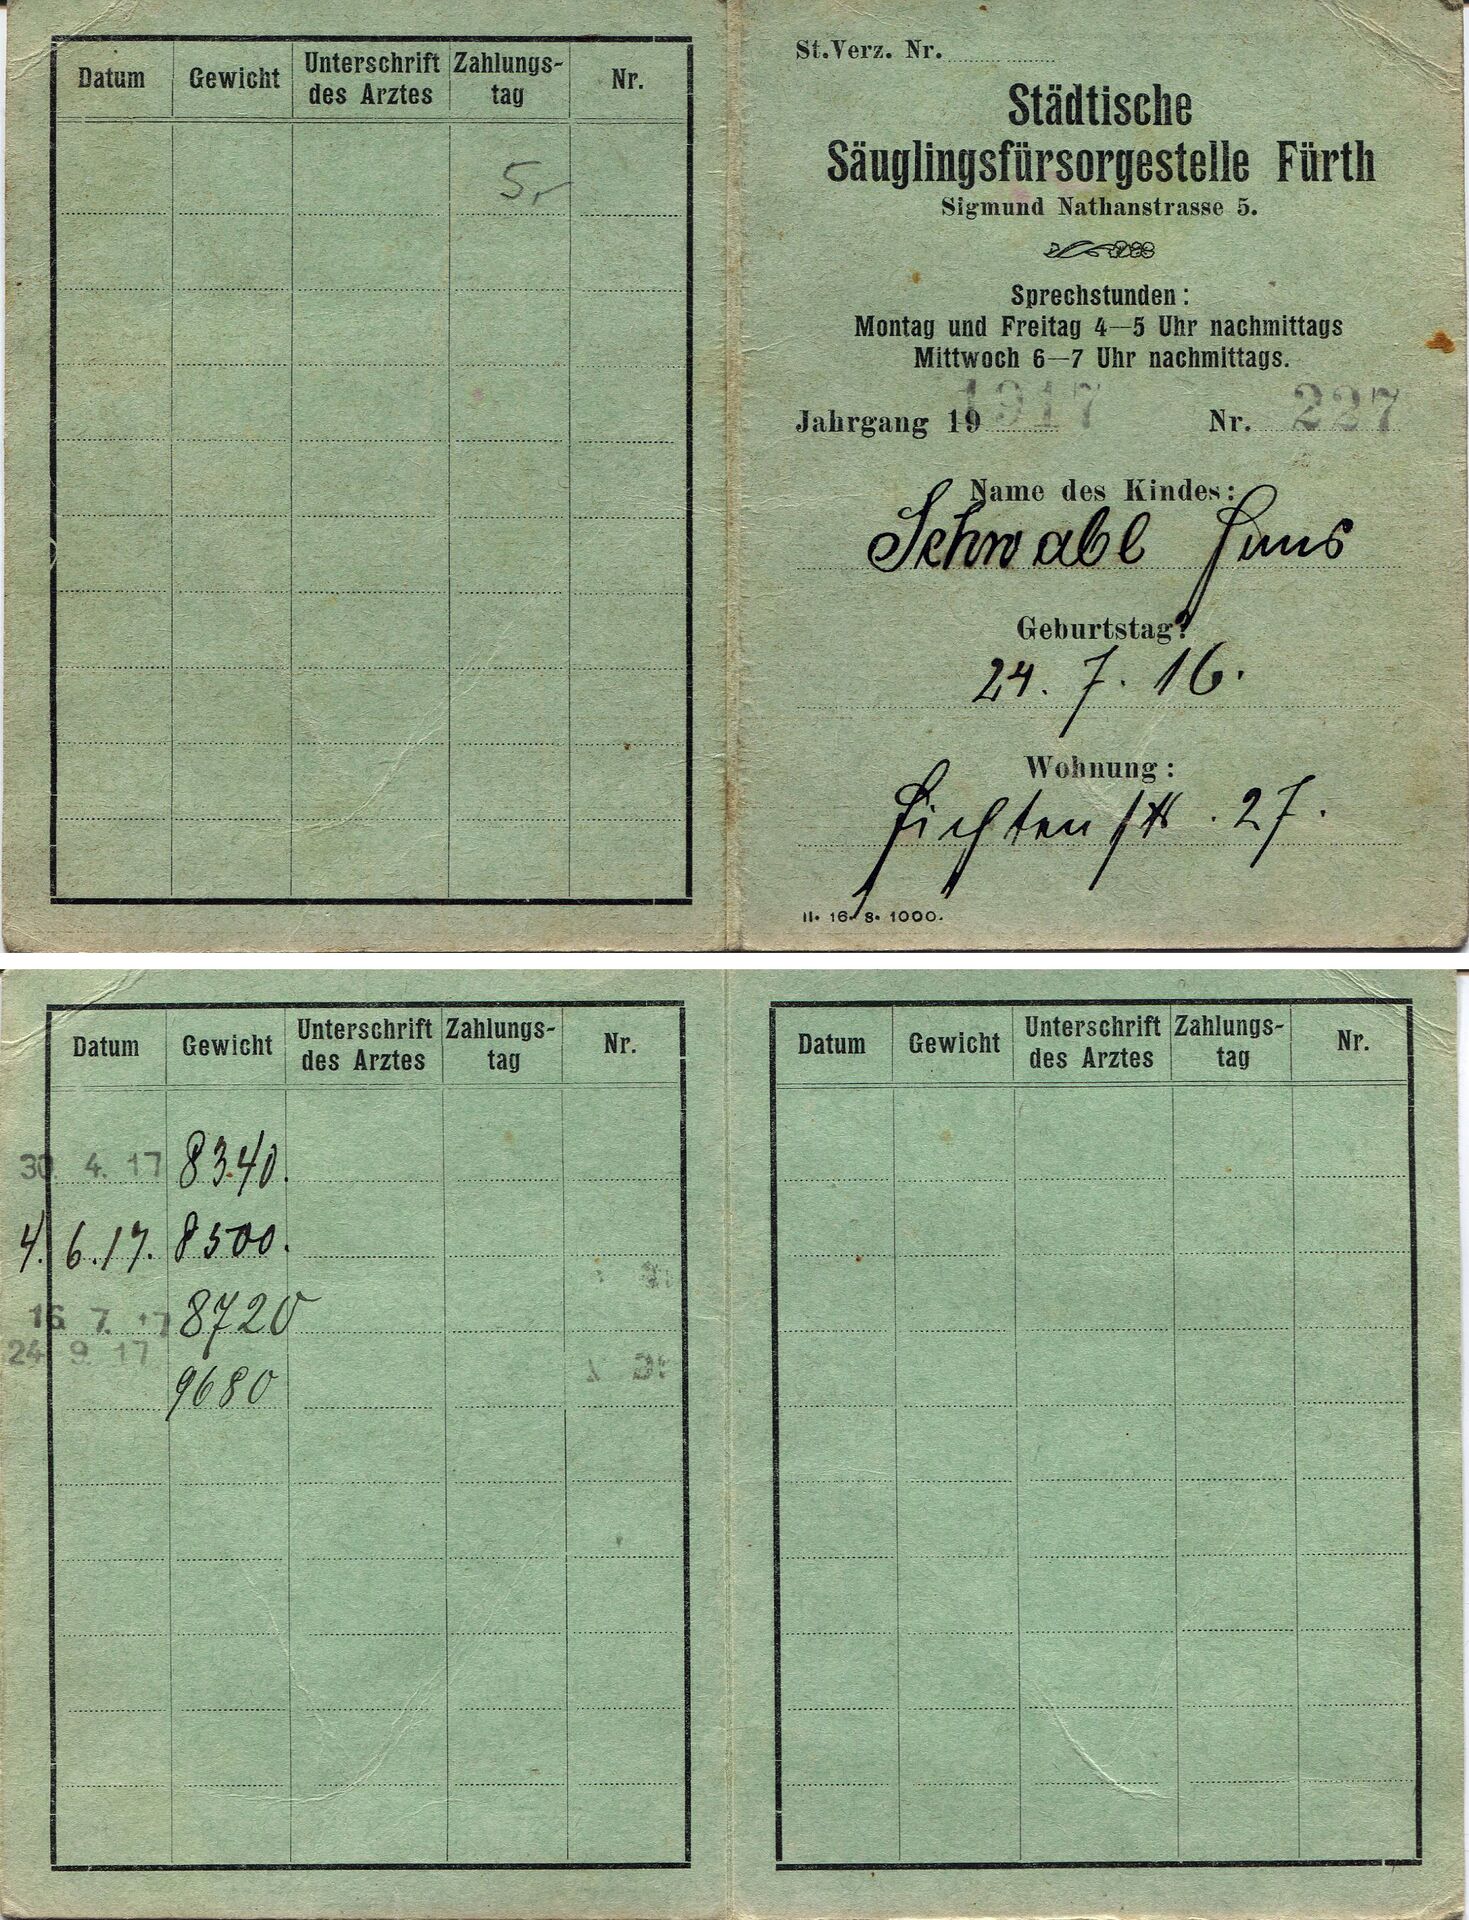 Datum Gewicht Unterschrift des Arztes Zahlungs-tag Nr.
5,-
St.Verz. Nr.
Städtische
Säuglingsfürsorgestelle Fürth
Sigmund Nathanstrasse 5.
Sprechstunden:
Montag und Freitag 4—5 Uhr nachmittags
Mittwoch 6—7 Uhr nachmittags.
Jahrgang 19 1917 Nr. 227
Name des Kindes:
Schwabl Hans
Geburtstag:
24. 7. 16.
Wohnung:
Fichtenstr. 27.
II. 16. 8. 1000.
Datum Gewicht Unterschrift des Arztes Zahlungs-tag Nr.
30. 4. 17 8340.
4. 6. 17. 8500.
16. 7. 17 8720
24 9 17
9680
Datum Gewicht Unterschrift des Arztes Zahlungs-tag Nr.